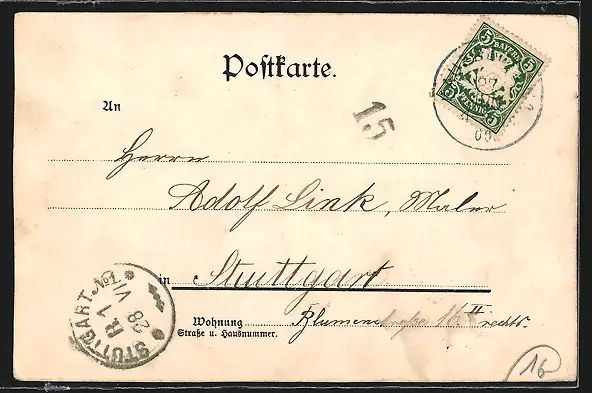 Postkarte.
5 BAYERN 5
5 PFENNIG 5
15
An
Herrn
Adolf Link, Maler
in Stuttgart
Wohnung Blumenstraße 16 II rechts.
Straße u. Hausnummer.
STUTTGART. No1.
VII
28
16